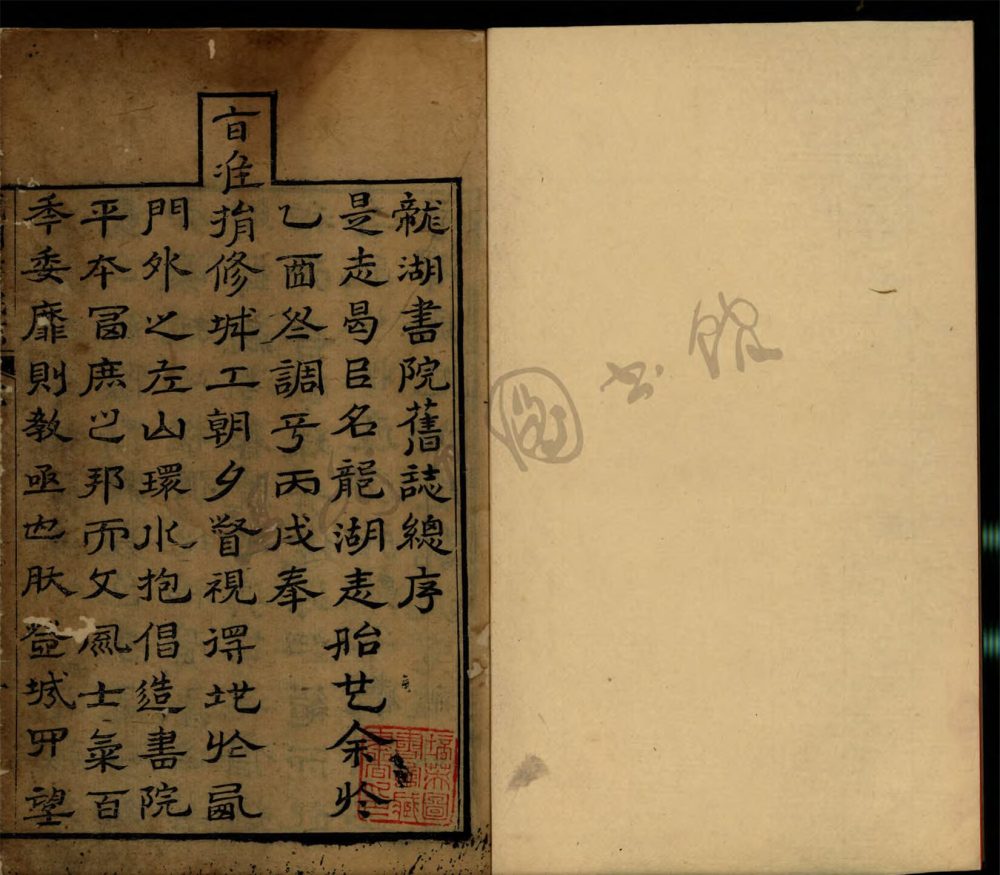 圖書館
龍湖書院舊誌總序
是志曷㠯名龍湖志胎也余於
乙酉冬調平丙戌奉
旨准捐修城工朝夕督視得地於
門外之左山環水抱倡造書院
平本富庶之邦而文風士氣百
年委靡則教亟也肰登城四望